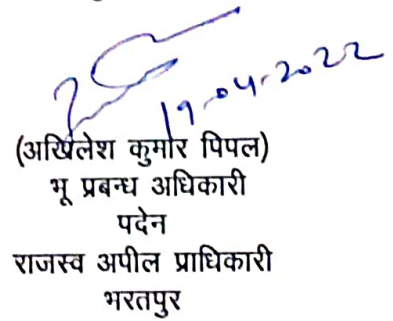 19-04-2022
(अखिलेश कुमार पिपल)
भू प्रबन्ध अधिकारी
पदेन
राजस्व अपील प्राधिकारी
भरतपुर